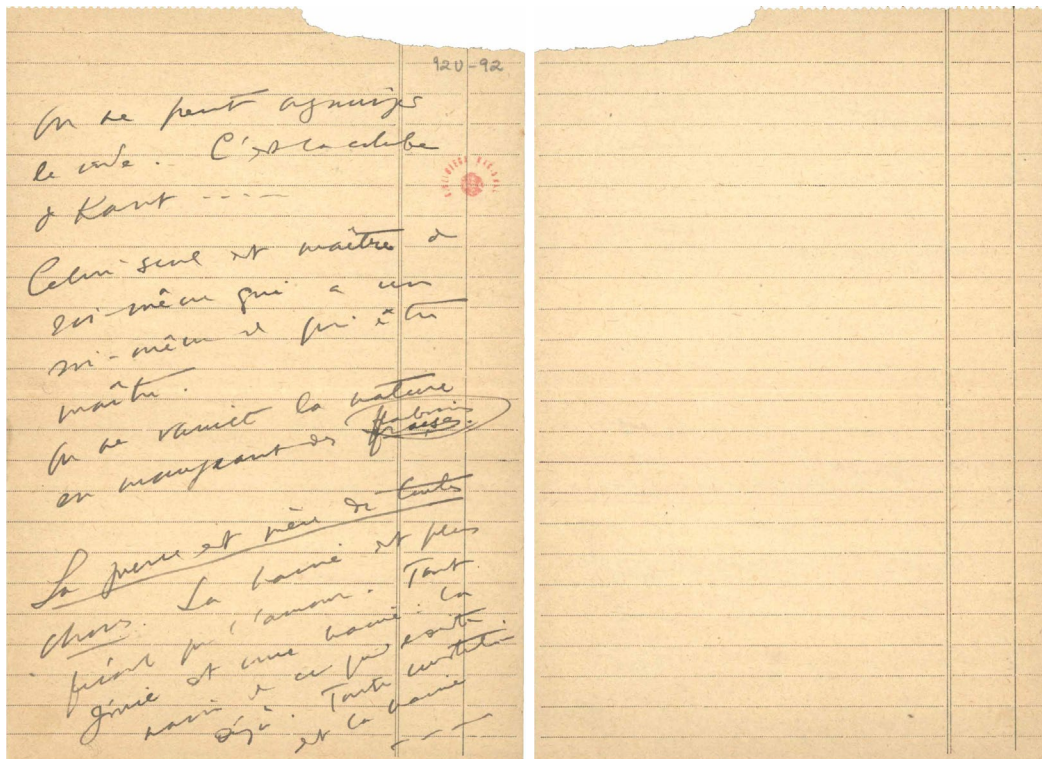 92V-92
On ne peut organiser
le vide. C'est la colombe
de Kant ----
Celui seul est maître de
soi-même qui a un
soi-même de qui être
maître.
On ne vainct la nature
en mangeant des
La guerre est père de toutes
choses. La haine est plus
féconde que l'amour. Tout
génie est une haine : la
haine de ce qui existe
déjà. Toute
est la haine
---